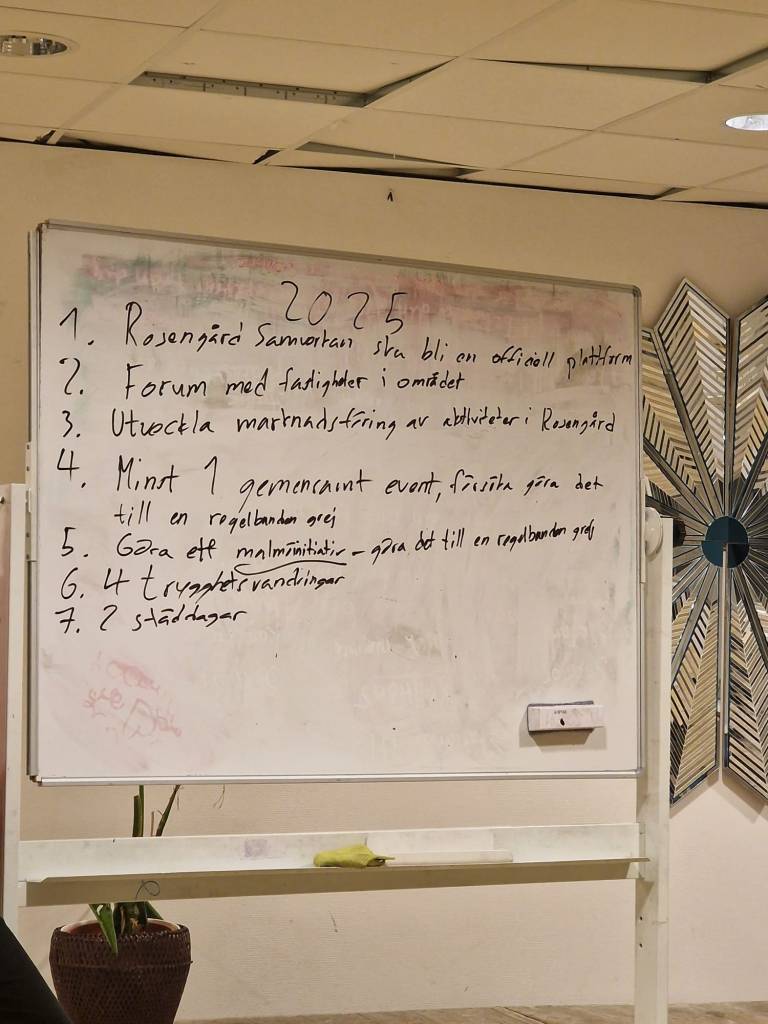 2025
1. Rosengård Samverkan ska bli en officiell plattform
2. Forum med fastigheter i området
3. Utveckla marknadsföring av aktiviteter i Rosengård
4. Minst 1 gemensamt event, försöka göra det
till en regelbunden grej
5. Göra ett malmöinitiativ – göra det till en regelbunden grej
6. 4 trygghetsvandringar
7. 2 städdagar